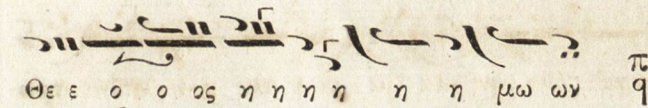 Θε ε ο ο ος η η η η η η μω ων π q